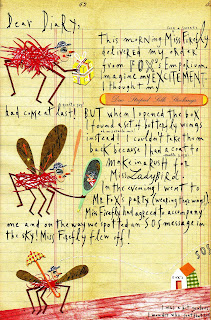 Dear Diary,
This morning Miss Firefly
delivered my order
from FOX's Emporium.
Imagine my EXCITEMENT.
I thought my
Fine Striped Silk Stockings
had come at last! BUT when I opened the box
I found a set of butterfly wings
instead! I couldn't take them
back because I had a coat to
make in a rush for
Miss Ladybird.
In the evening I went to
Mr Fox's party (wearing the wings).
Miss Firefly had agreed to accompany
me and on the way we spotted an SOS message in
the sky! Miss Firefly flew off!
SOS
I was a bit jealous